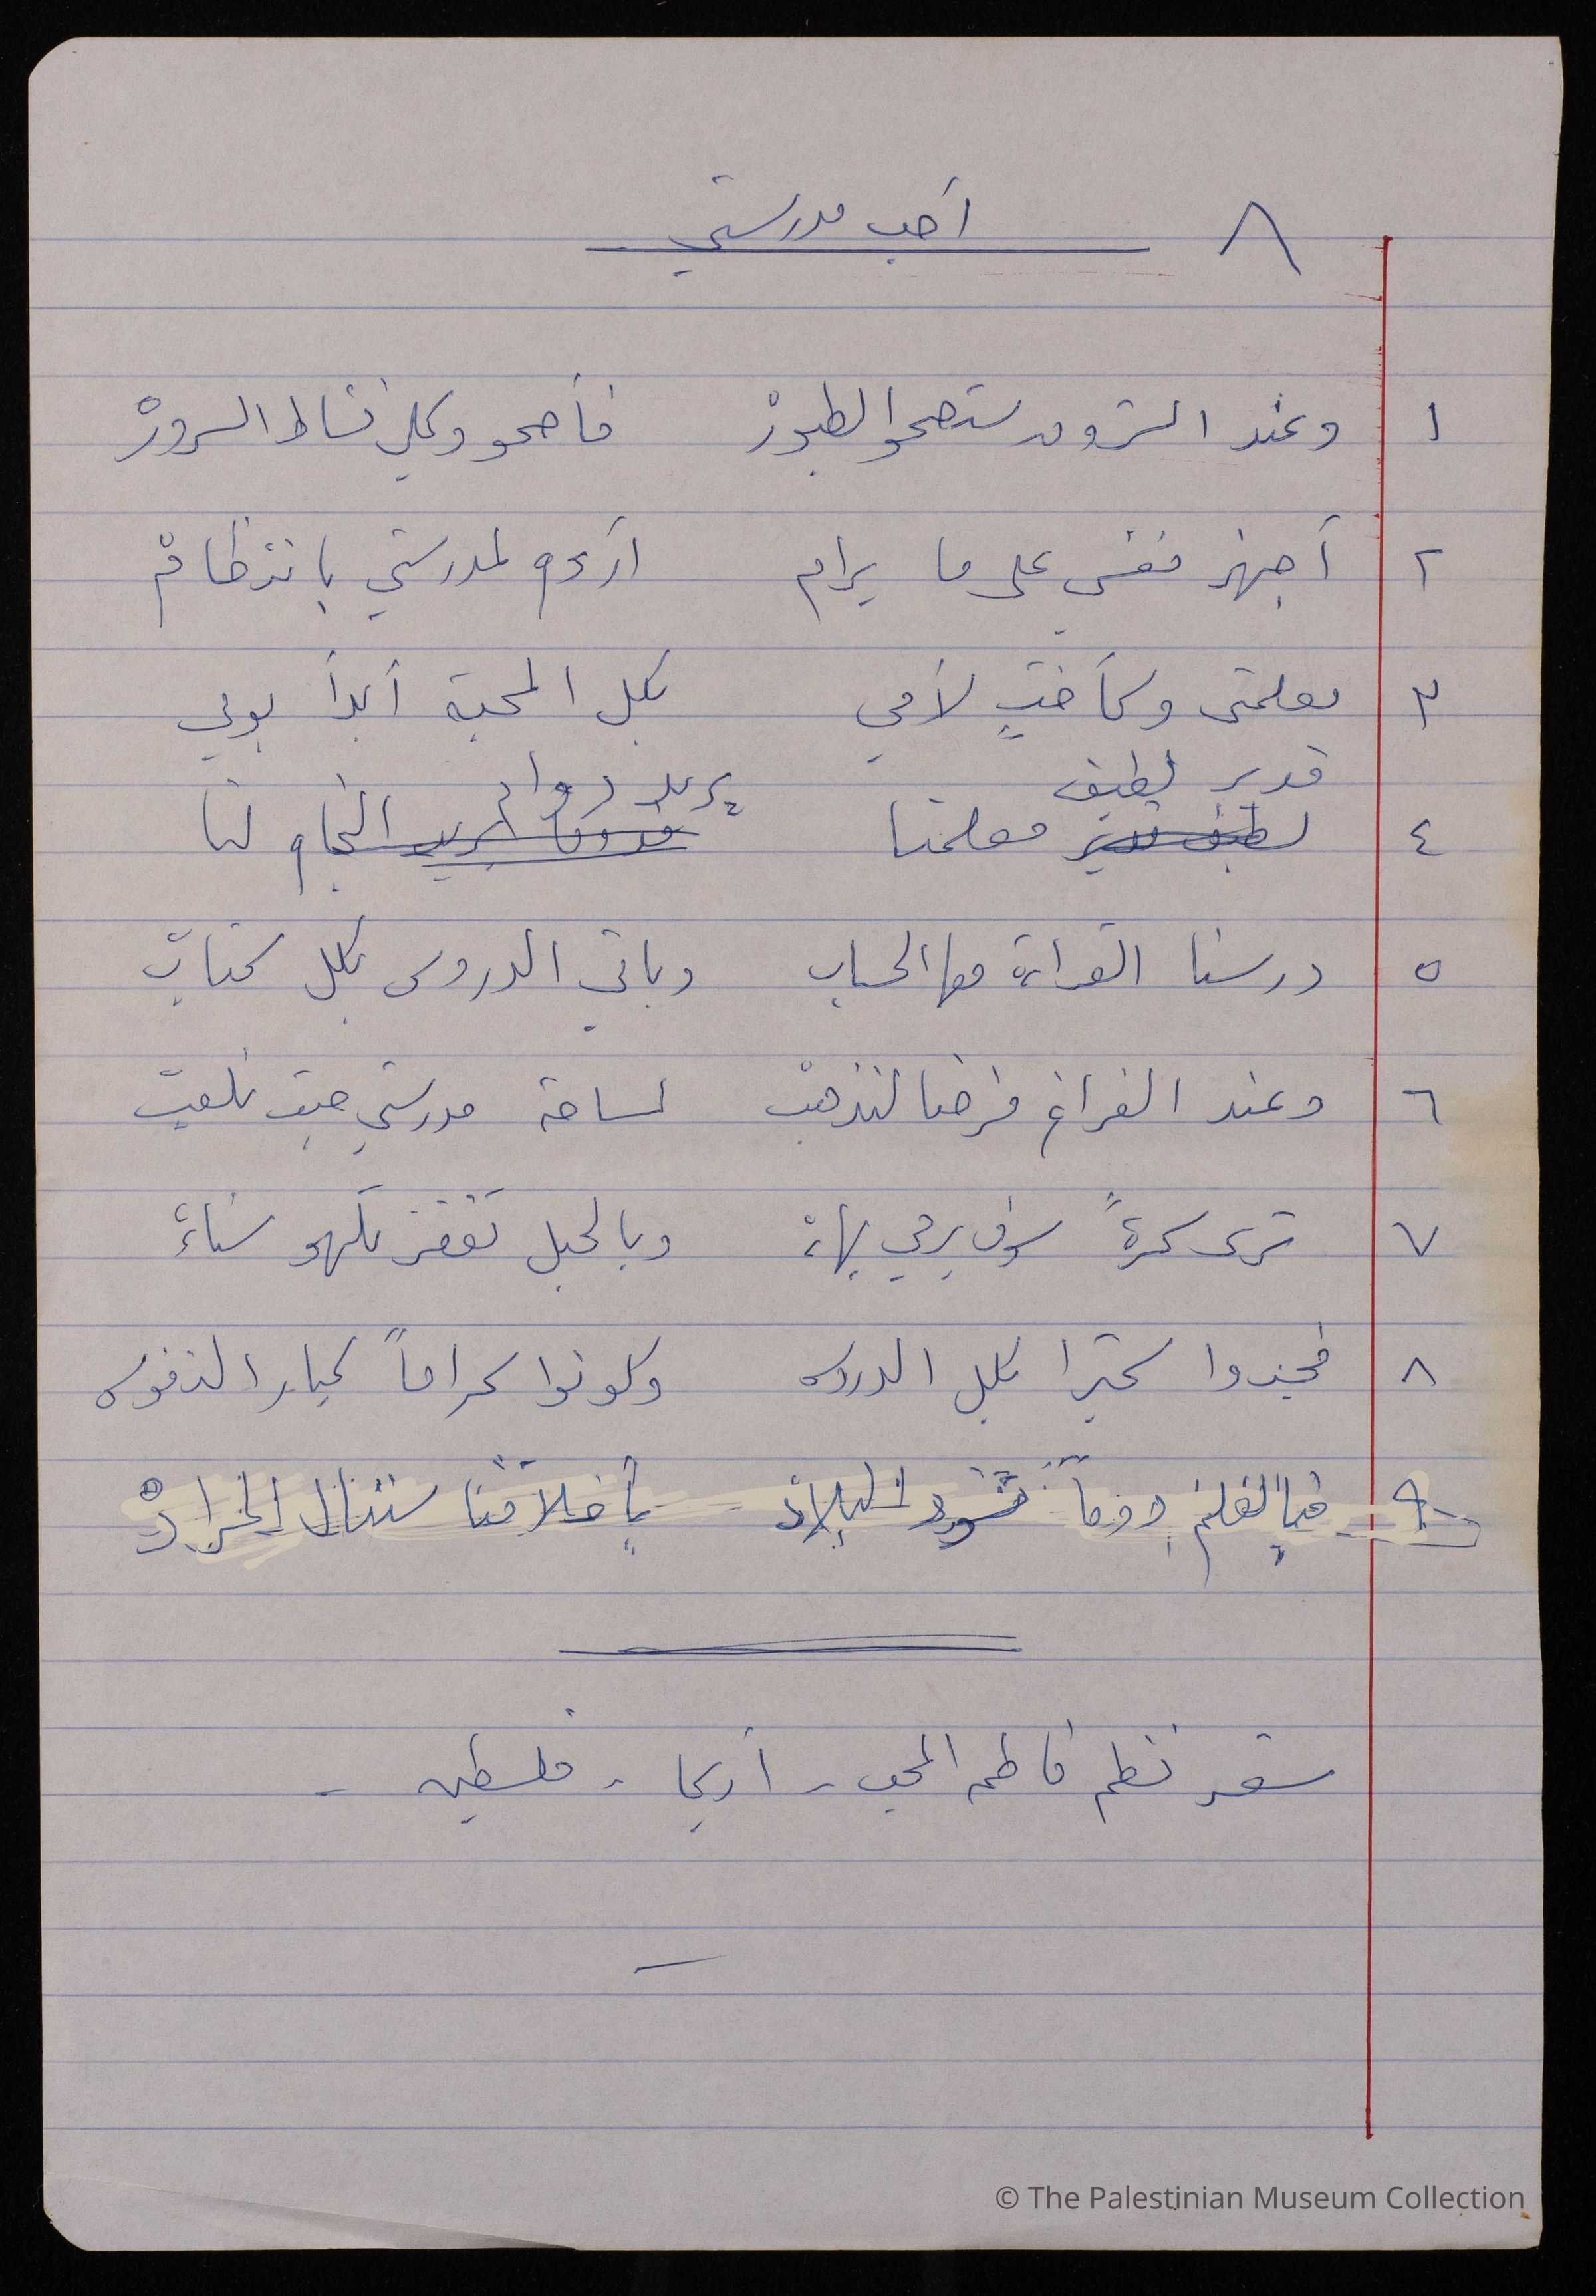 ٨ أحب مدرستي
١ وعند الشروق ستصحو الطيورْ فأصحو وكلي نشاط السرورْ
٢ أجهز نفسي على ما يرام أروح لمدرستي بانتظامْ
٣ معلمتي وكأختٍ لأمي بكل المحبة أبدأ يومي
قدير لطيف يريد دوام
٤ معلمنا النجاح لنا
٥ درسنا القراءة معها الحساب وباقي الدروس بكل كتابْ
٦ وعند الفراغ فرضنا لنذهبْ لساحة مدرستي حيث نلعبْ
٧ ترى كرةً سوف يرمي بهاءْ وبالحبل تقفز تلهو سناءْ
٨ فجدوا كثيرا بكل الدروس وكونوا كراماً كبار النفوس
٩ فبالعلم دوماً تسود البلادْ بأخلاقنا سننال المرادْ
شعر نظم فاطمه المحب - أريحا - فلسطين -
© The Palestinian Museum Collection